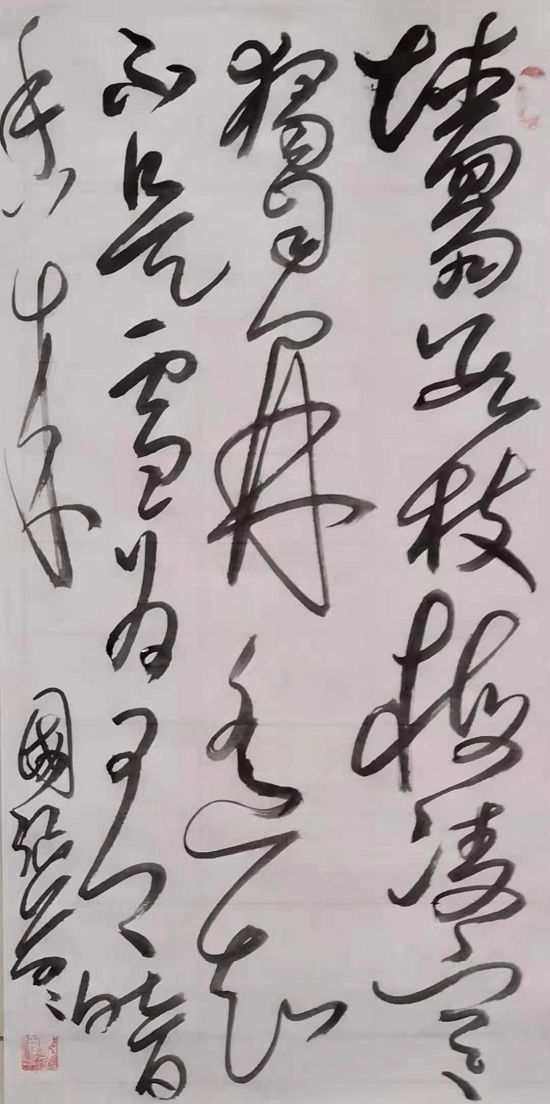 墻角數枝梅凌寒
獨自開遥知
不是雪為有暗
香來
國